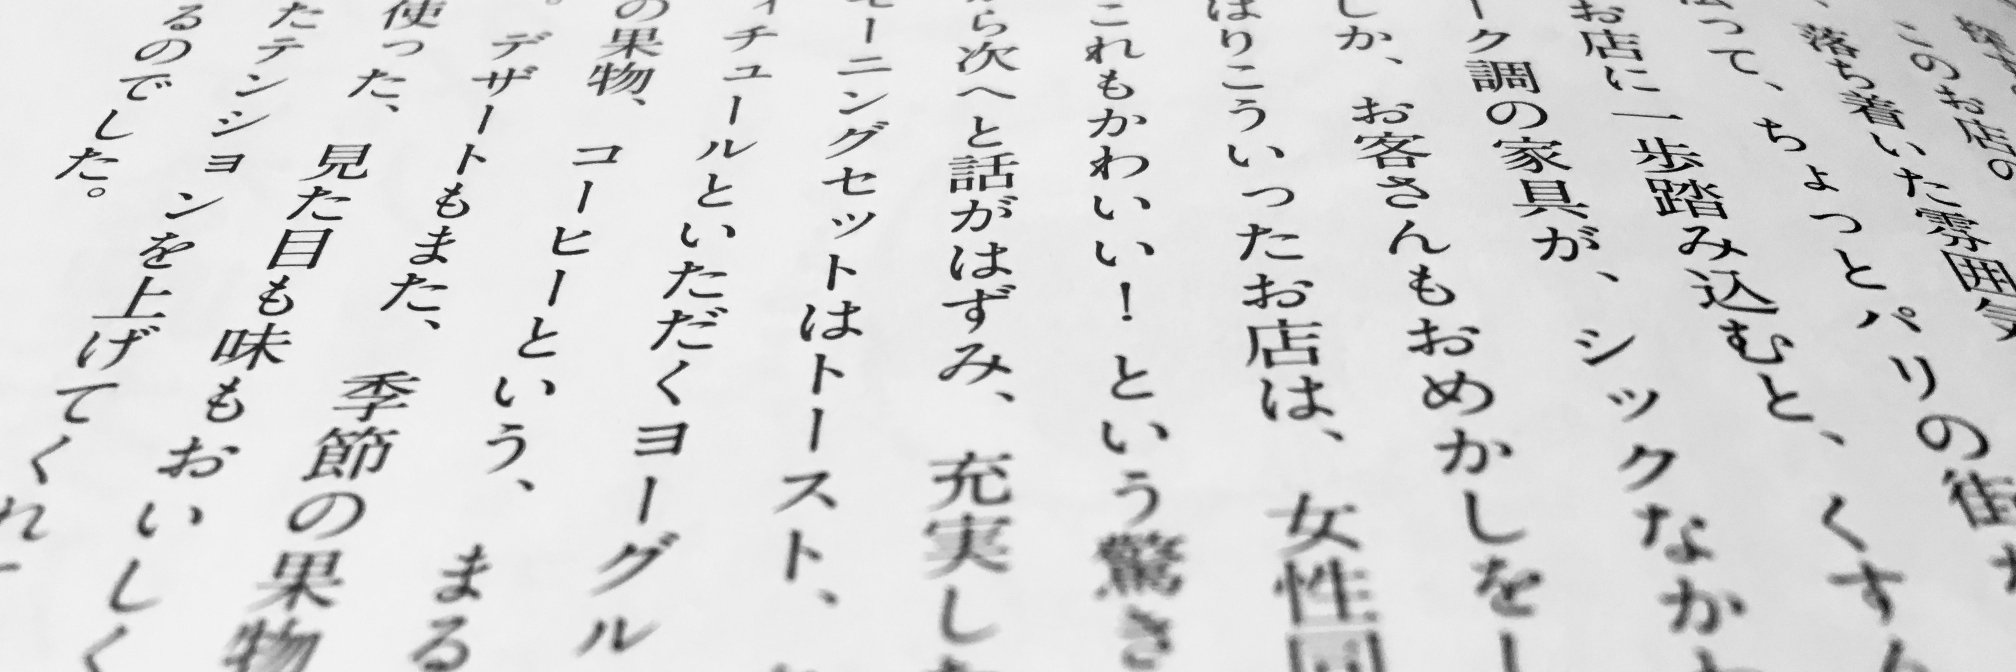 このお店の
落ち着いた雰囲気
って、ちょっとパリの街
お店に一歩踏み込むと、くすん
ーク調の家具が、シックなか
しか、お客さんもおめかしをし
はりこういったお店は、女性同
これもかわいい！という驚き
から次へと話がはずみ、充実し
モーニングセットはトースト、
ィチュールといただくヨーグル
の果物、コーヒーという、まる
。デザートもまた、季節の果物
使った、見た目も味もおいしく
たテンションを上げてくれ
るのでした。